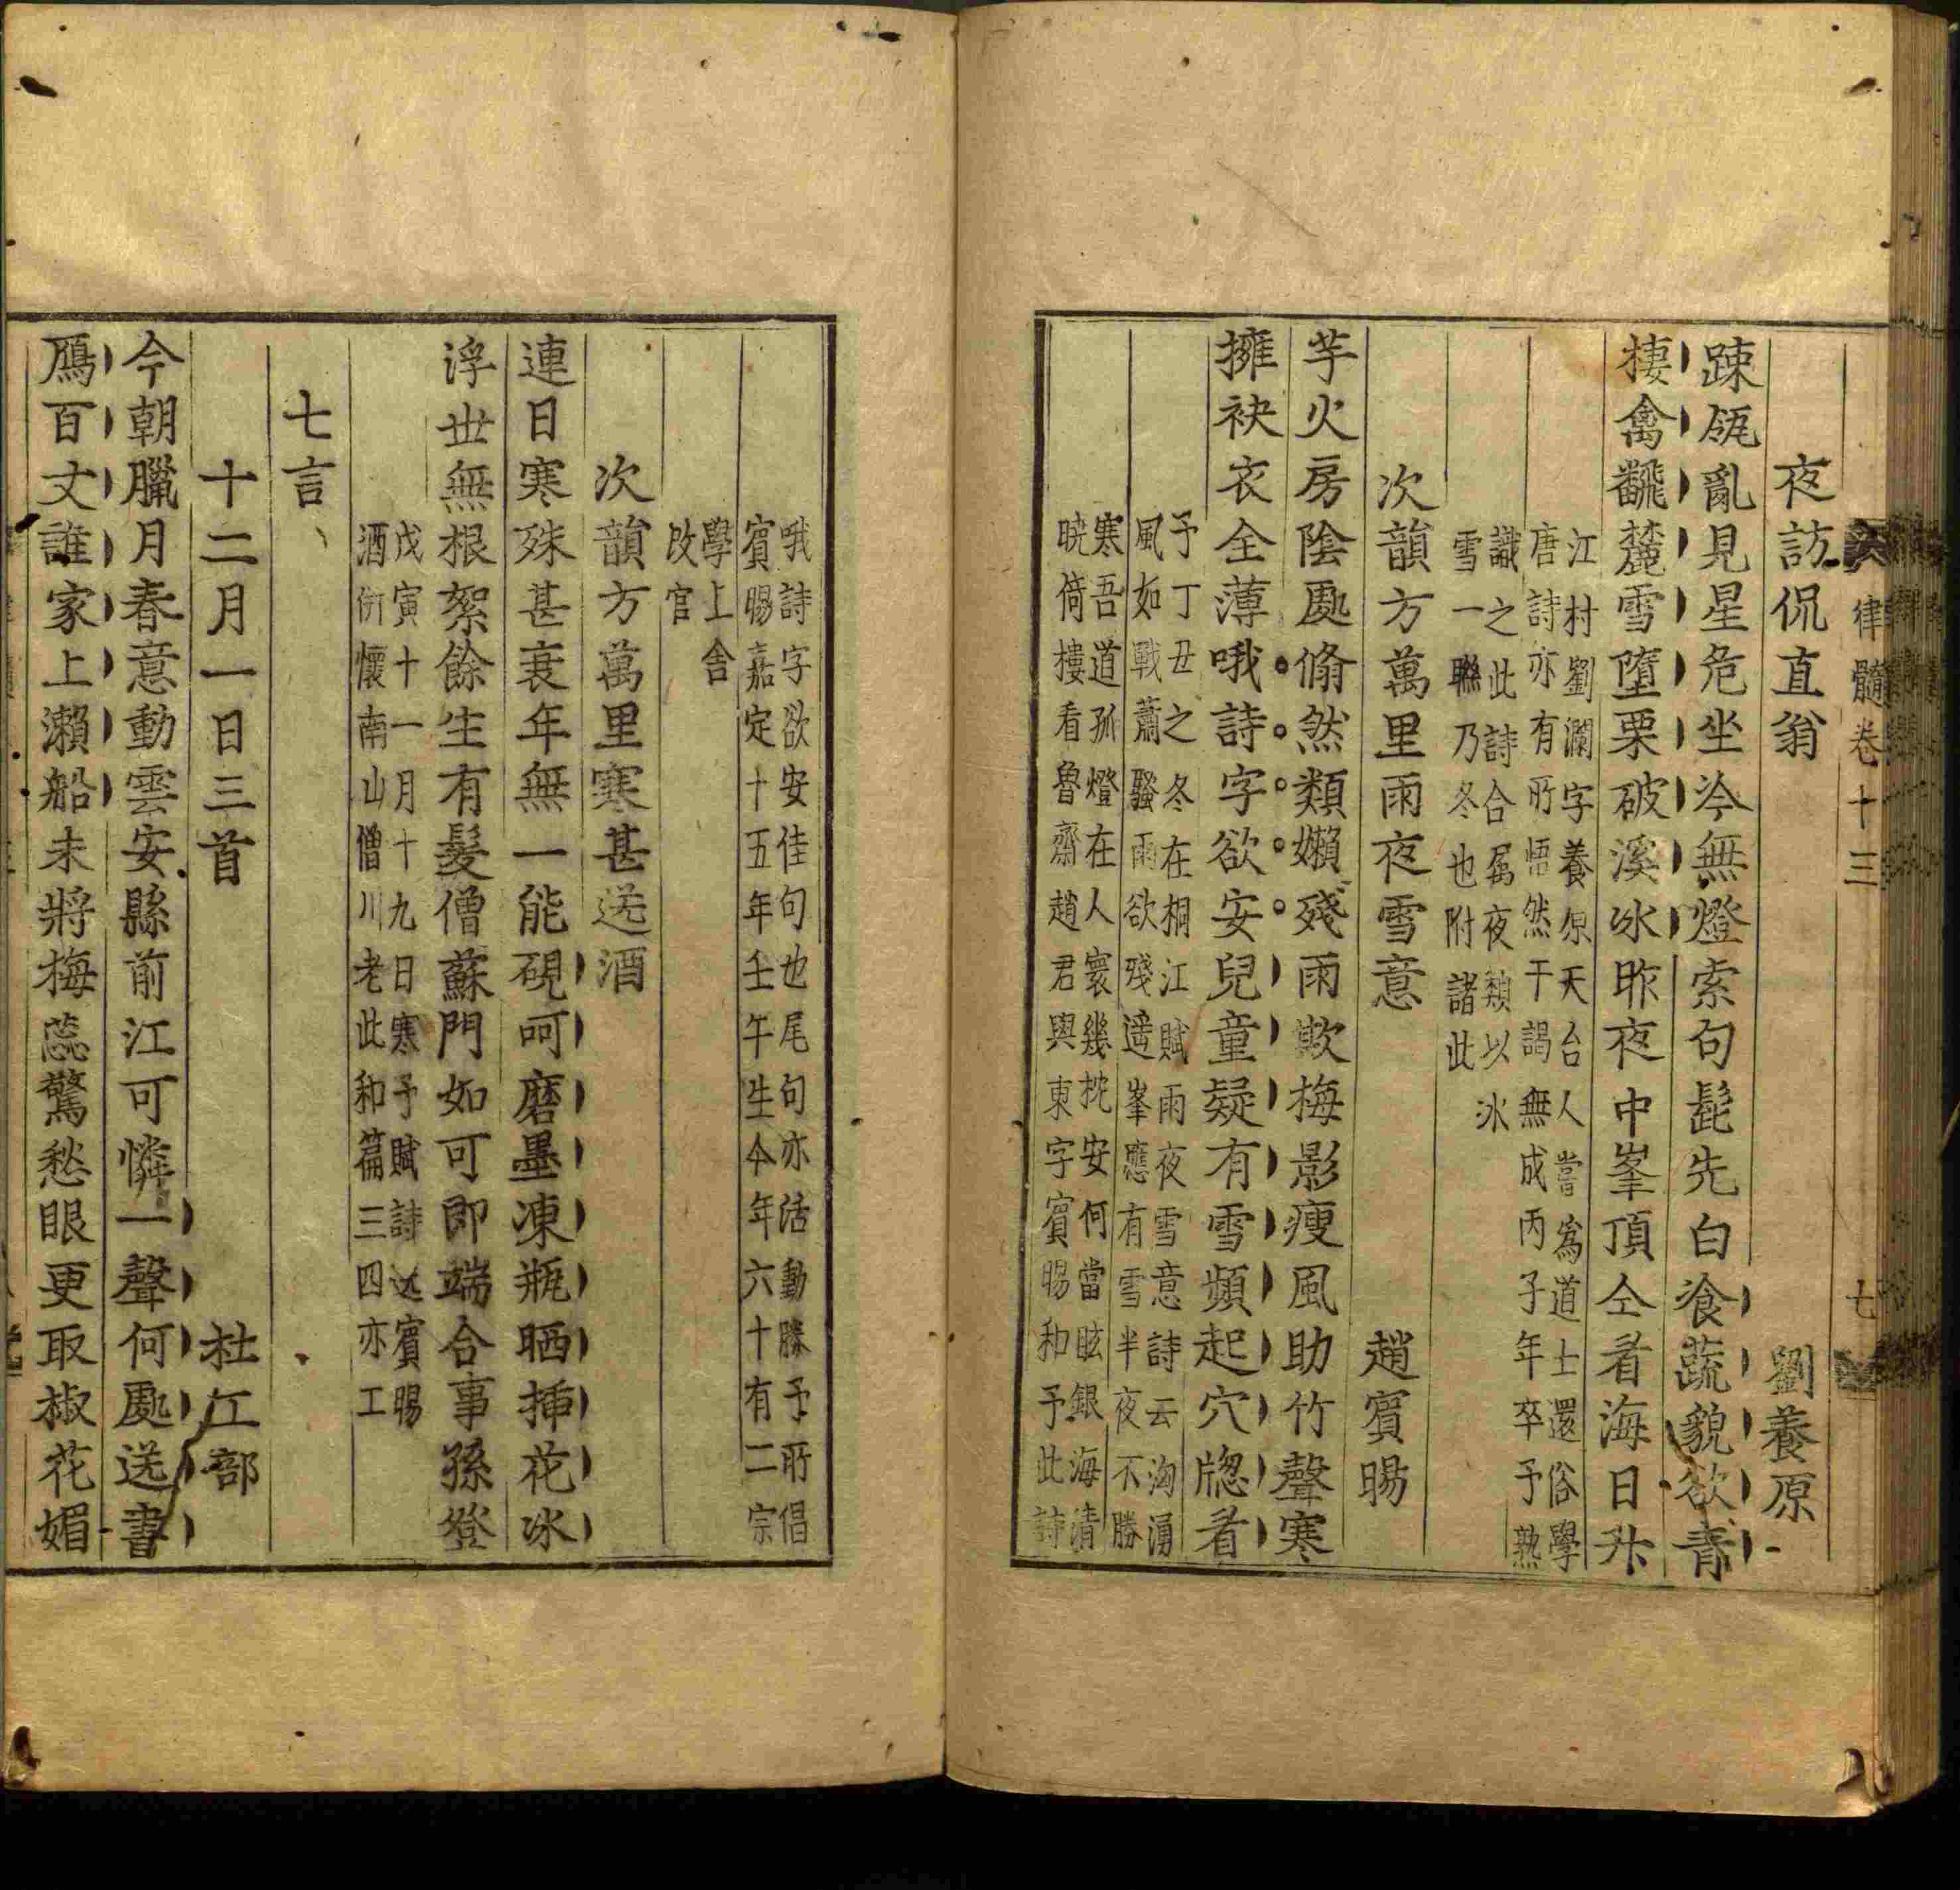 律髓卷十三 七
夜訪侃直翁 劉養原
踈瓴亂見星危坐冷無燈索句髭先白飡蔬貌欲青
棲禽飜麓雪墮栗破溪冰昨夜中峯頂仝看海日升
江村劉瀾字養原天台人嘗爲道士還俗學
唐詩亦有所悟然干謁無成丙子年卒予熟
識之此詩合属夜類以冰
雪一聯乃冬也附諸此
次韻方萬里雨夜雪意 趙賓暘
芋火房陰處翛然類嬾殘雨欺梅影瘦風助竹聲寒
擁袂衣全薄哦詩字欲安兒童疑有雪頻起穴牎看
予丁丑之冬在桐江賦雨夜雪意詩云洶湧
風如戰蕭騷雨欲殘遥峯應有雪半夜不勝
寒吾道孤燈在人寰幾枕安何當眩銀海清
曉倚樓看魯齋趙君與東字賓暘和予此詩
哦詩字欲安佳句也尾句亦活動勝予所倡
賓暘嘉定十五年壬午生今年六十有二宗
學上舍
改官
次韻方萬里寒甚送酒
連日寒殊甚衰年無一能硯呵磨墨凍瓶晒挿花冰
浮世無根絮餘生有髮僧蘇門如可即端合事孫登
戊寅十一月十九日寒予賦詩送賓暘
酒俯懷南山僧川老此和篇三四亦工
七言
十二月一日三首 杜工部
今朝臘月春意動雲安縣前江可憐一聲何處送書
鴈百丈誰家上瀨船未將梅蕊驚愁眼更取椒花媚